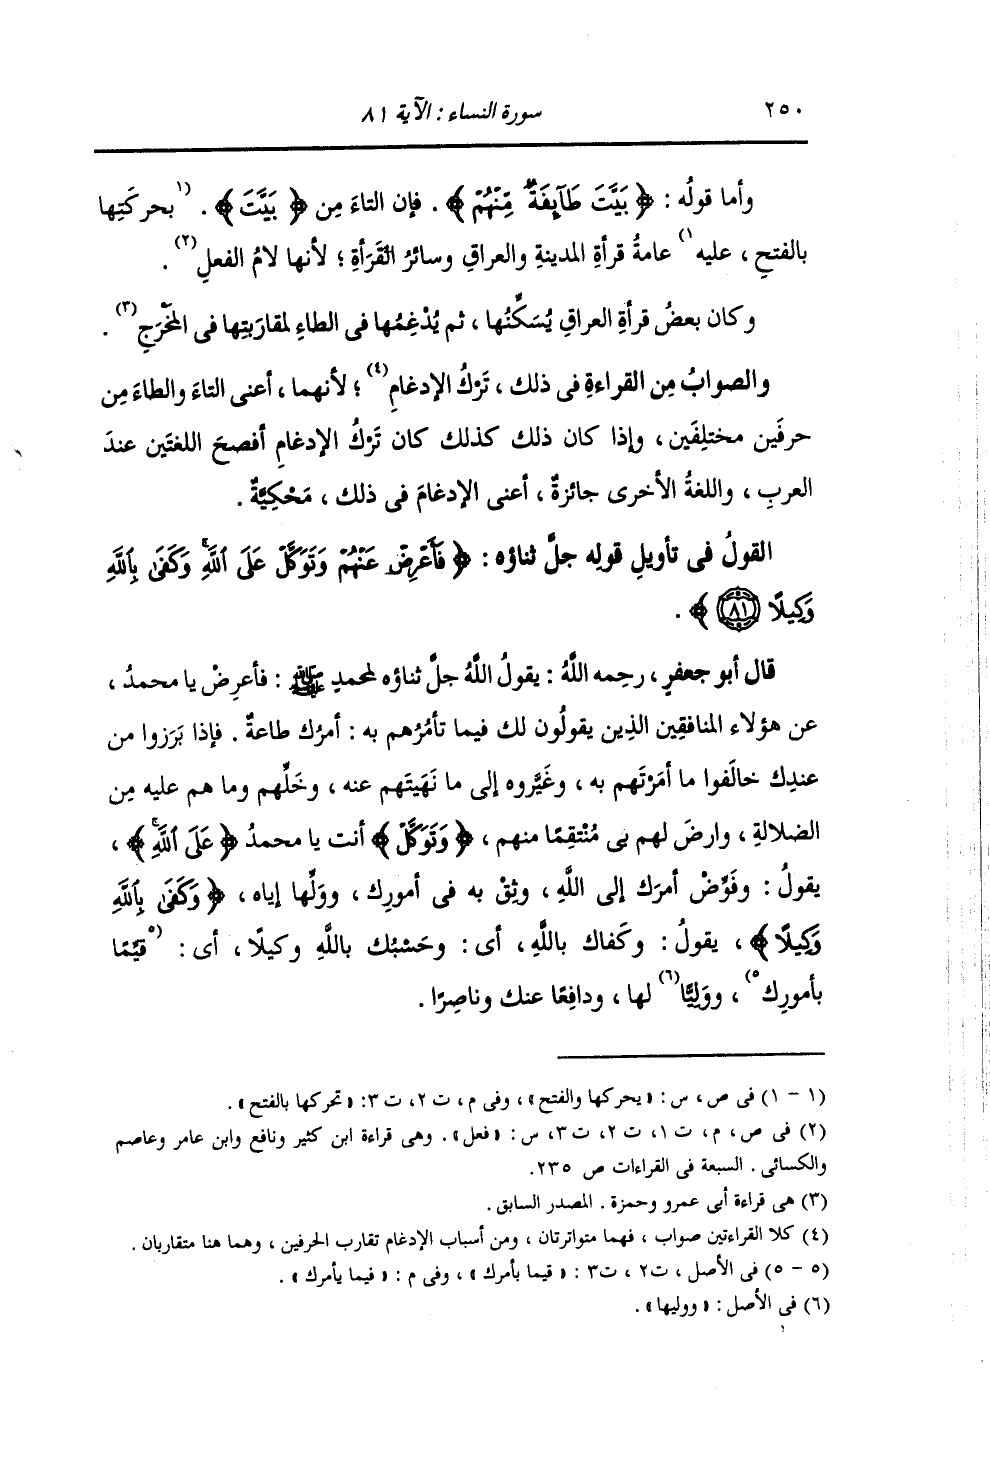 ٢٥٠ سورة النساء : الآية ٨١
وأما قولُه : ﴿ بَيَّتَ طَآئِفَةٌ مِّنْهُمْ ﴾ . فإن التاءَ مِن ﴿ بَيَّتَ ﴾ . (١ بحركتِها
بالفتحِ ، عليه ١) عامةُ قرأةِ المدينةِ والعراقِ وسائرُ القَرَأةِ ؛ لأنها لامُ الفعلِ (٢) .
وكان بعضُ قرأةِ العراقِ يُسَكِّنُها ، ثم يُدْغِمُها فى الطاءِ لمقاربَتِها فى المَخْرَجِ (٣) .
والصوابُ مِن القراءةِ فى ذلك ، تَرْكُ الإدغامِ (٤) ؛ لأنهما ، أعنى التاءَ والطاءَ مِن
حرفَين مختلِفَين ، وإذا كان ذلك كذلك كان تَرْكُ الإدغامِ أفصحَ اللغتَين عندَ
العربِ ، واللغةُ الأخرى جائزةٌ ، أعنى الإدغامَ فى ذلك ، مَحْكِيَّةٌ .
القولُ فى تأويلِ قولِه جلَّ ثناؤه : ﴿ فَأَعْرِضْ عَنْهُمْ وَتَوَكَّلْ عَلَى ٱللَّهِۚ وَكَفَىٰ بِٱللَّهِ
وَكِيلًا ٨١ ﴾ .
قال أبو جعفرٍ ، رحِمه اللَّهُ : يقولُ اللَّهُ جلَّ ثناؤه لمحمدٍ ﷺ : فأعرِضْ يا محمدُ ،
عن هؤلاء المنافقِين الذِين يقولُون لك فيما تأمُرُهم به : أمرُك طاعةٌ . فإذا بَرَزوا من
عندِك خالَفوا ما أمَرْتَهم به ، وغَيَّروه إلى ما نَهَيتَهم عنه ، وخَلِّهم وما هم عليه مِن
الضلالةِ ، وارضَ لهم بى مُنْتقِمًا منهم ، ﴿ وَتَوَكَّلْ ﴾ أنت يا محمدُ ﴿ عَلَى ٱللَّهِۚ ﴾ ،
يقولُ : وفَوِّضْ أمرَك إلى اللَّهِ ، وثِقْ به فى أمورِك ، ووَلِّها إياه ، ﴿ وَكَفَىٰ بِٱللَّهِ
وَكِيلًا ﴾ ، يقولُ : وكَفاك باللَّهِ ، أى : وحَسْبُك باللَّهِ وكيلًا ، أى : (٥ قيِّمًا
بأمورِك ٥) ، ووَلِيًّا (٦) لها ، ودافِعًا عنك وناصِرًا .
(١ - ١) فى ص ، س : « يحركها والفتح » ، وفى م ، ت ٢، ت ٣: « تحركها بالفتح » .
(٢) فى ص، م، ت ١، ت ٢، ت ٣، س : « فعل » . وهى قراءة ابن كثير ونافع وابن عامر وعاصم
والكسائى . السبعة فى القراءات ص ٢٣٥.
(٣) هى قراءة أبى عمرو وحمزة . المصدر السابق .
(٤) كلا القراءتين صواب ، فهما متواترتان ، ومن أسباب الإدغام تقارب الحرفين ، وهما هنا متقاربان .
(٥ - ٥) فى الأصل ، ت٢ ، ت٣ : « قيما بأمرك » ، وفى م : « فيما يأمرك » .
(٦) فى الأصل : « ووليها » .